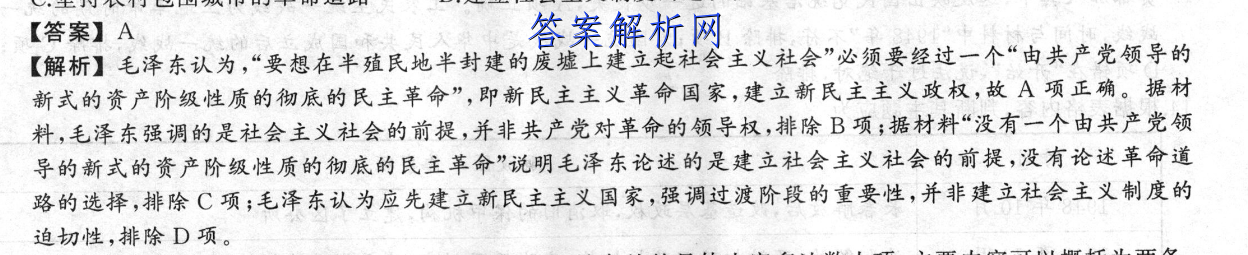 【答案】A
答案解析网
【解析】毛泽东认为,“要想在半殖民地半封建的废墟上建立起社会主义社会”必须要经过一个“由共产党领导的
新式的资产阶级性质的彻底的民主革命”,即新民主主义革命国家,建立新民主主义政权,故 A 项正确。据材
料,毛泽东强调的是社会主义社会的前提,并非共产党对革命的领导权,排除 B 项;据材料“没有一个由共产党领
导的新式的资产阶级性质的彻底的民主革命”说明毛泽东论述的是建立社会主义社会的前提,没有论述革命道
路的选择,排除 C 项;毛泽东认为应先建立新民主主义国家,强调过渡阶段的重要性,并非建立社会主义制度的
迫切性,排除 D 项。